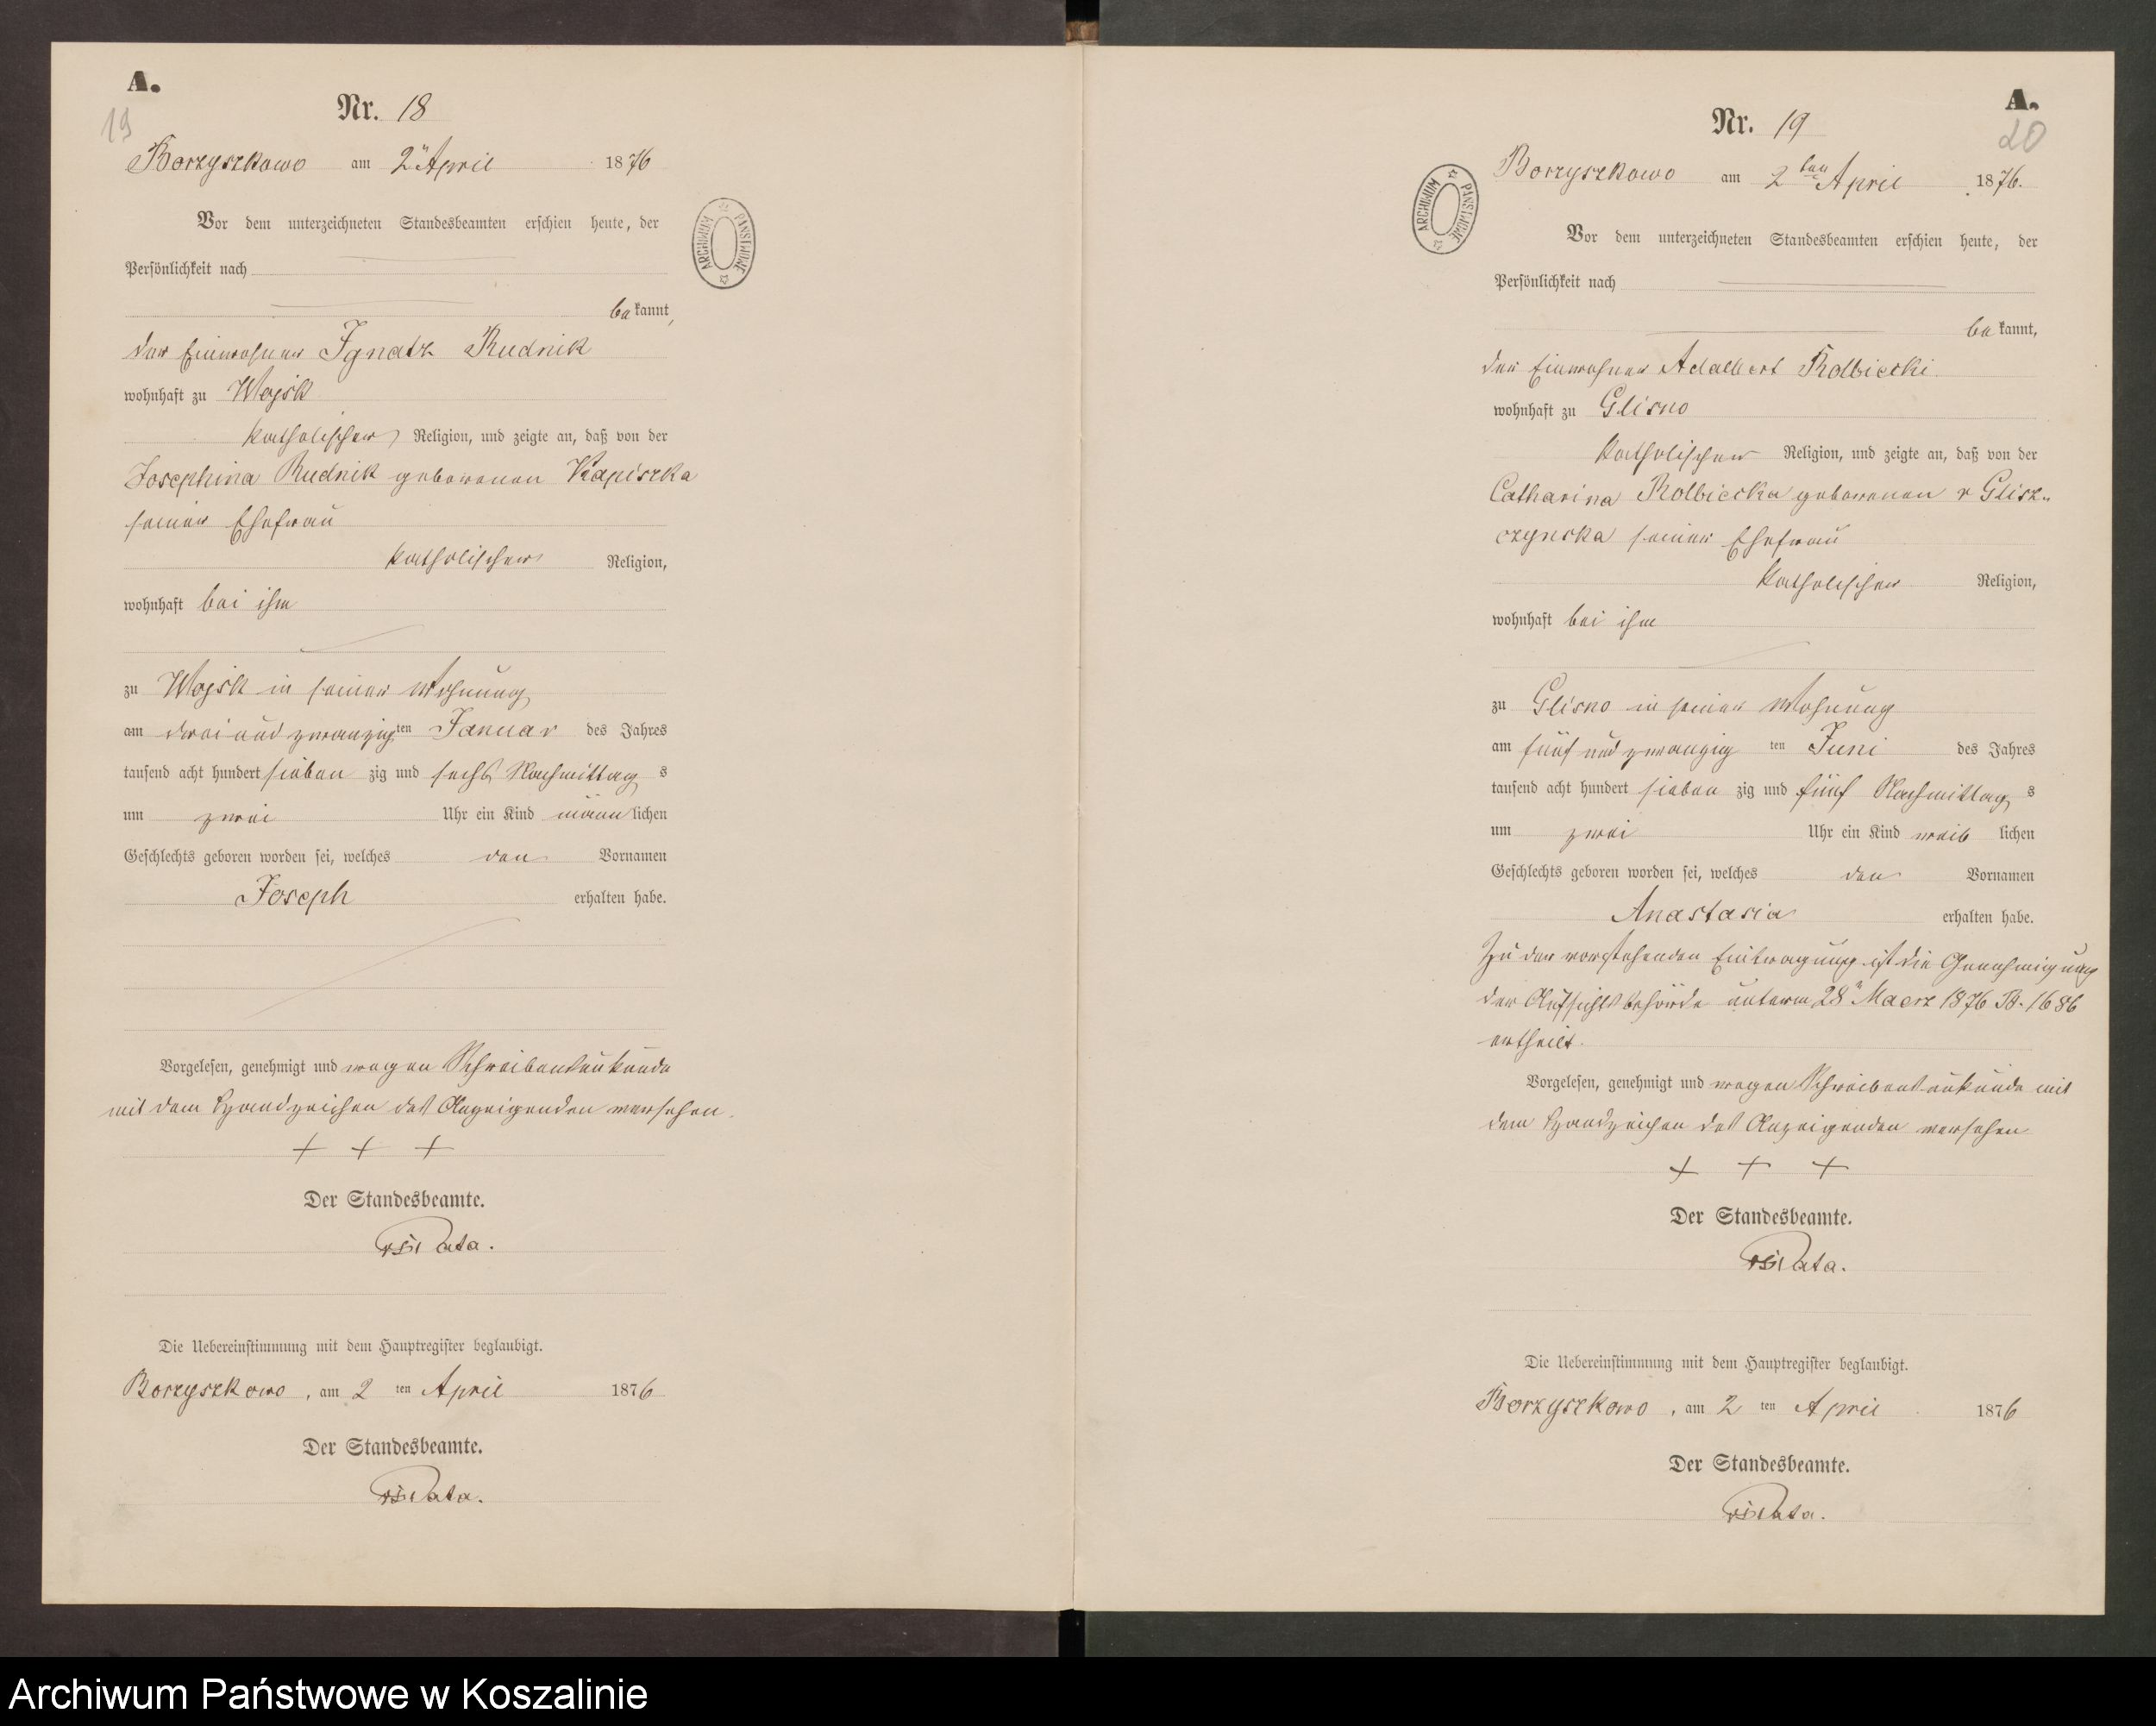 A.
19
Nr. 18
Borzyszkowo am 2n April 1876
Vor dem unterzeichneten Standesbeamten erschien heute, der
Persönlichkeit nach
bekannt,
der Einwohner Ignatz Rudnik
wohnhaft zu Wojsk
katholischer Religion, und zeigte an, daß von der
Josephina Rudnik geborenen Kapiszka
seiner Ehefrau
katholischer Religion,
wohnhaft bei ihm
zu Wojsk in seiner Wohnung
am drei und zwanzigten Januar des Jahres
tausend acht hundert sieben zig und sechs Nachmittag s
um zwei Uhr ein Kind männlichen
Geschlechts geboren worden sei, welches den Vornamen
Joseph erhalten habe.
Vorgelesen, genehmigt und wegen Schreibensunkunde
mit dem Handzeichen des Anzeigenden versehen.
+ + +
Der Standesbeamte.
Pata.
Die Uebereinstimmung mit dem Hauptregister beglaubigt.
Borzyszkowo, am 2 ten April 1876
Der Standesbeamte.
Pata.
A.
20
Nr. 19
Borzyszkowo am 2ten April 1876.
Vor dem unterzeichneten Standesbeamten erschien heute, der
Persönlichkeit nach
bekannt,
der Einwohner Adalbert Kolbiecki
wohnhaft zu Glisno
katholischer Religion, und zeigte an, daß von der
Catharina Kolbiecka geborenen v Glisz-
czynska seiner Ehefrau
katholischer Religion,
wohnhaft bei ihm
zu Glisno in seiner Wohnung
am fünf und zwanzig ten Juni des Jahres
tausend acht hundert sieben zig und fünf Nachmittag s
um zwei Uhr ein Kind weib lichen
Geschlechts geboren worden sei, welches den Vornamen
Anastasia erhalten habe.
Zu der vorstehenden Eintragung ist die Genehmigung
der Aufsichtsbehörde unterm 28n Maerz 1876 B. 1686
ertheilt.
Vorgelesen, genehmigt und wegen Schreibensunkunde mit
dem Handzeichen des Anzeigenden versehen
+ + +
Der Standesbeamte.
Pata.
Die Uebereinstimmung mit dem Hauptregister beglaubigt.
Borzyszkowo, am 2 ten April 1876
Der Standesbeamte.
Pata.
ARCHIWUM PAŃSTWOWE
ARCHIWUM PAŃSTWOWE
Archiwum Państwowe w Koszalinie